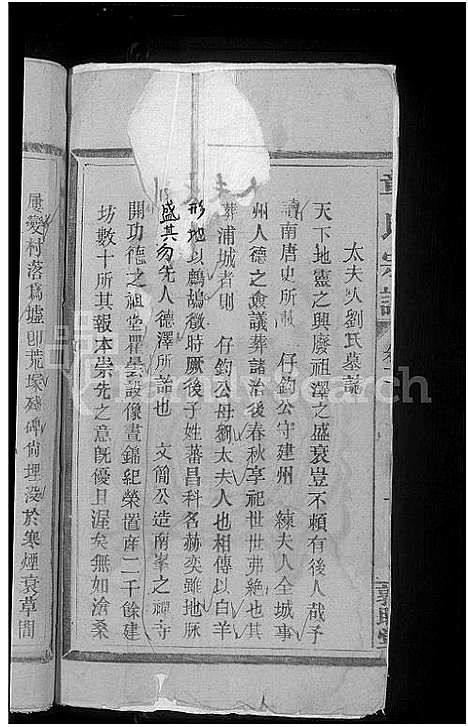 章氏宗譜
太夫人劉氏墓誌
天下地靈之興廢祖澤之盛衰豈不賴有後人哉予
讀南唐史所載 仔鈞公守建州 練夫人全城事
州人德之僉議葬諸治後春秋享祀世世弗絶也其
葬浦城者則 仔鈞公母劉太夫人也相傳以白羊
形地以鷓鴣徵時厥後子姓蕃昌科名赫奕雖地脉
盛其勿先人德澤所詒也 文簡公造南峯之禪寺
開功德之祖堂 設像晝錦紀榮置產二千餘建
坊數十所其報本崇先之意旣優且渥矣無如滄桑
屢變村落爲墟卽荒塚殘碑尙埋沒於寒煙衰草間